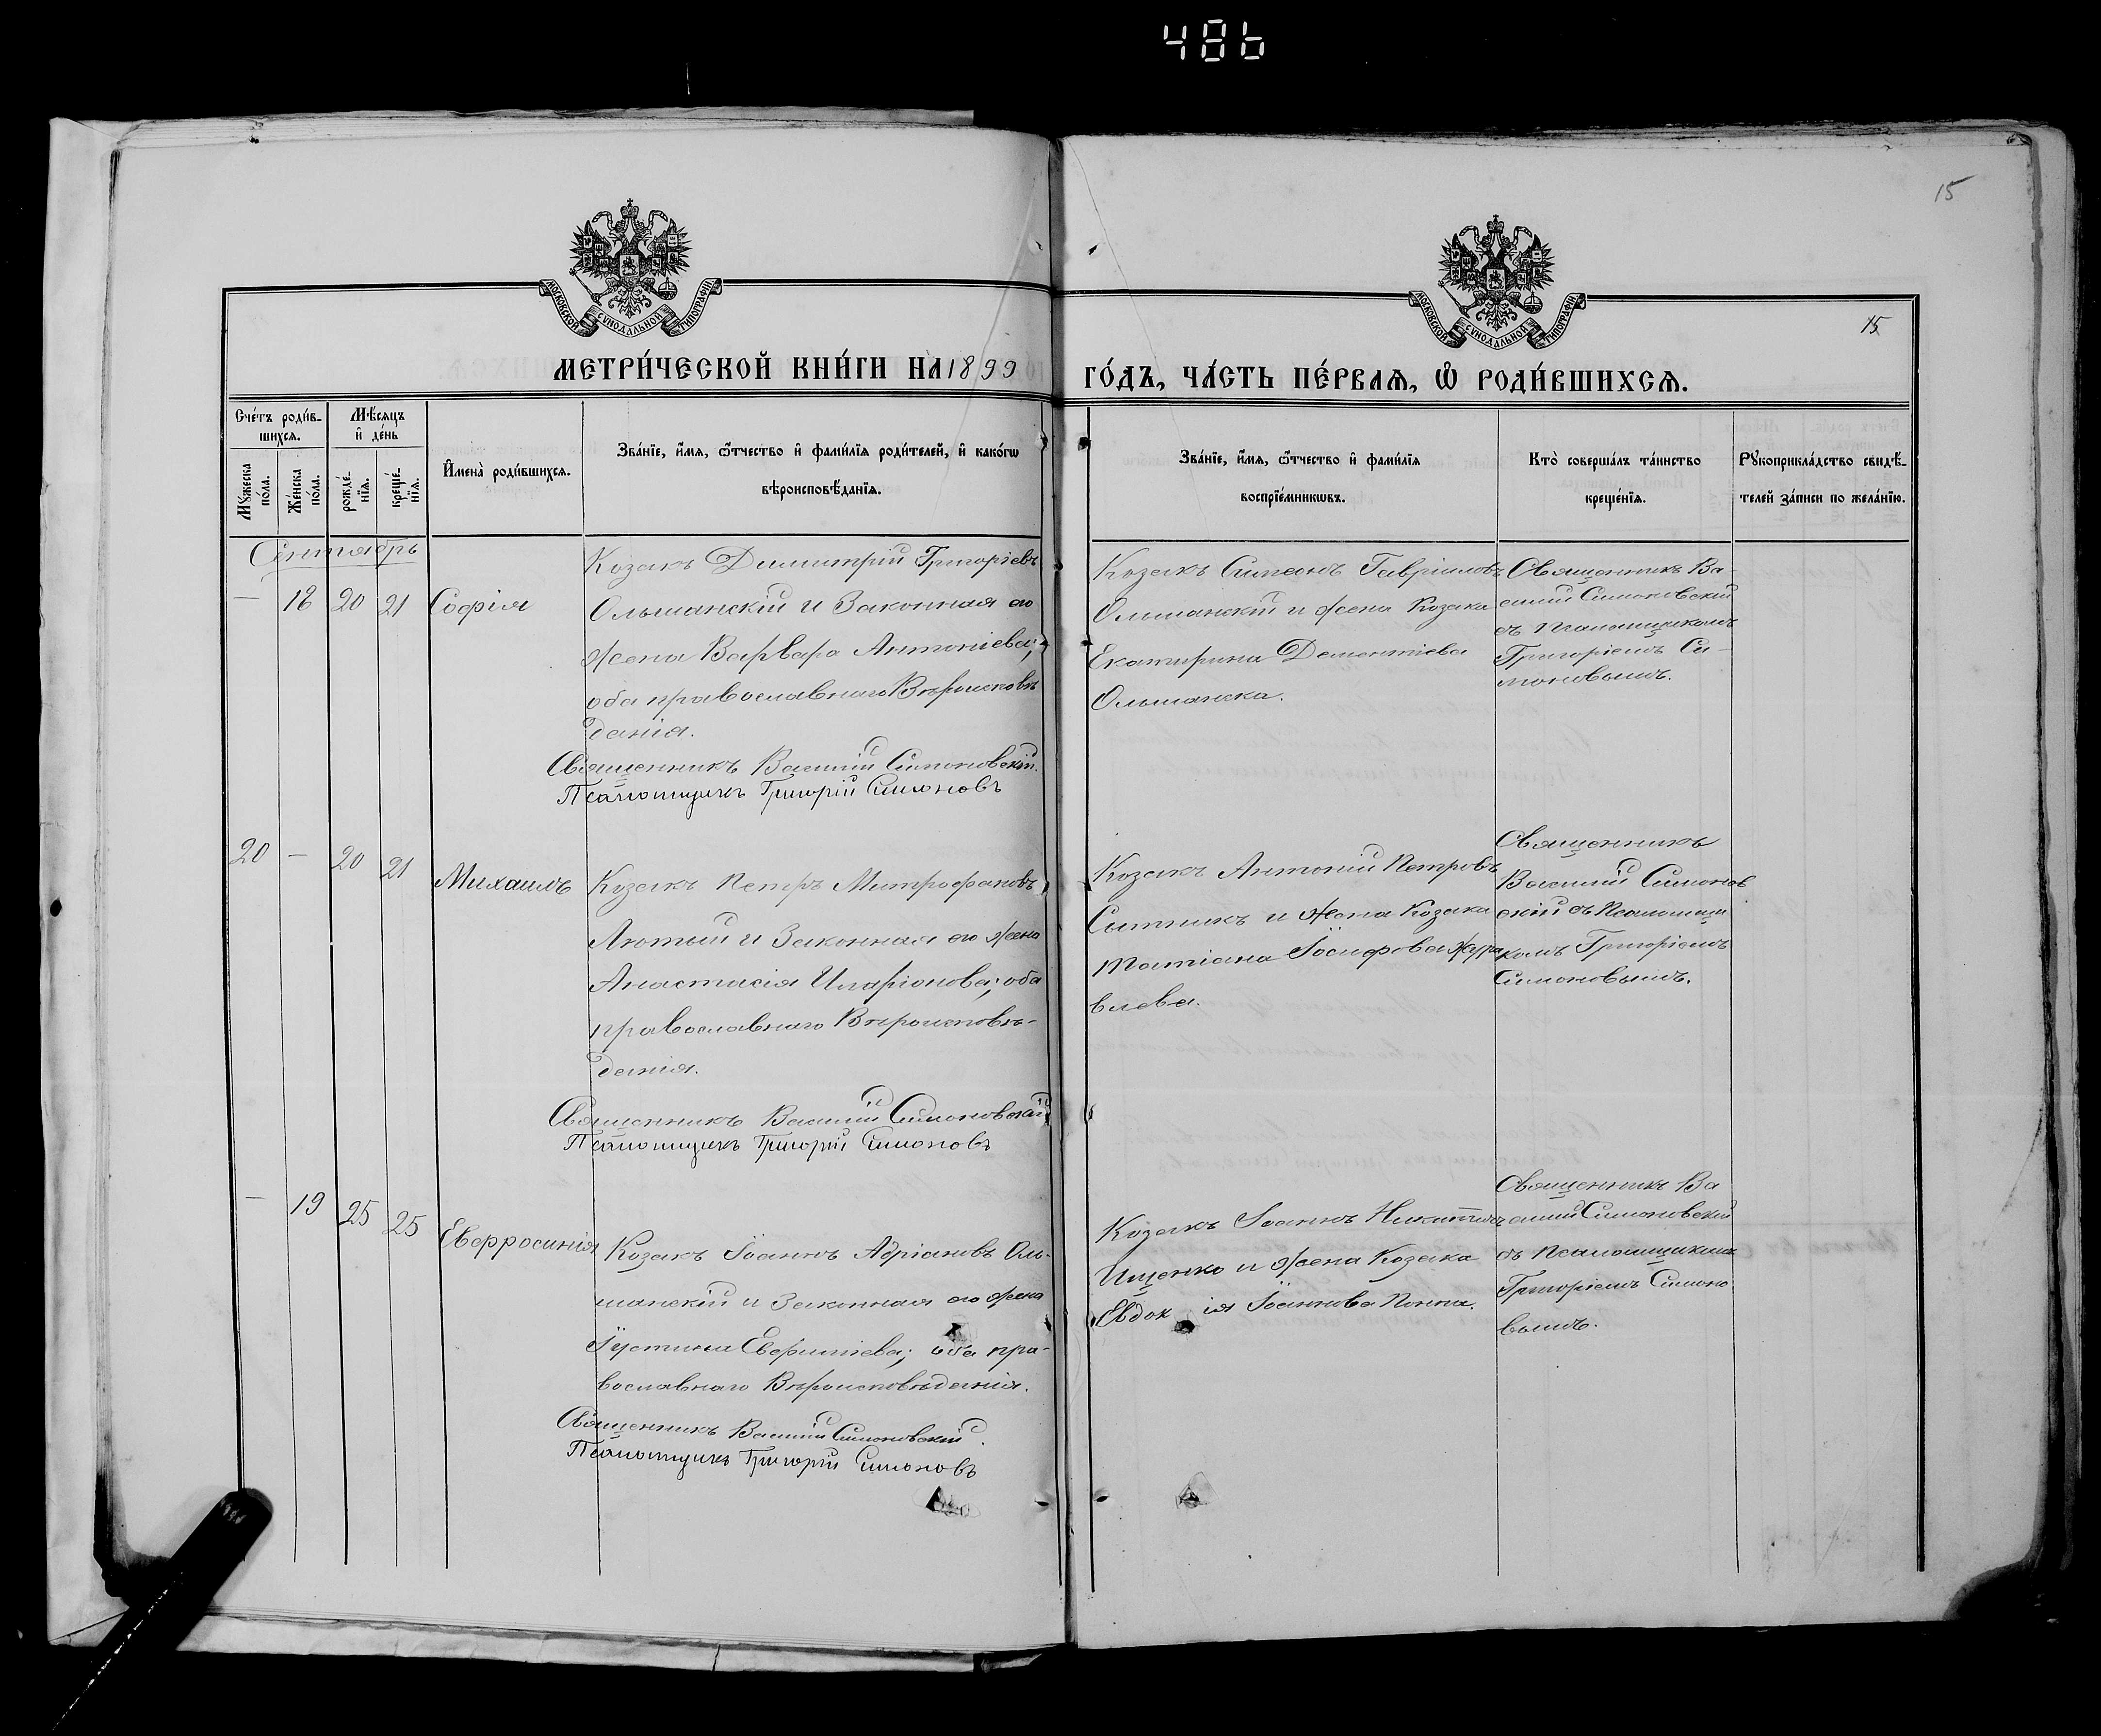 486
15
МОСКОВСКОЙ СѴНОДАЛЬНОЙ ТИПОГРАФІИ
МОСКОВСКОЙ СѴНОДАЛЬНОЙ ТИПОГРАФІИ
15
МЕТРИ́ЧЕСКОЙ КНИ́ГИ НА 1899
ГО́ДЪ, ЧА́СТЬ ПЕ́РВАѦ, Ѽ РОДИ́ВШИХСѦ.
Сче́тъ роди́в-
шихсѧ.
Мѣ́сѧцъ
и҆ де́нь
Мꙋ́жеска
по́ла.
Же́нска
по́ла.
рожде́-
нїѧ.
креще́-
нїѧ.
И҆мена̀ роди́вшихсѧ.
Зва́нїе, и҆́мѧ, ѻ҆́тчество и҆ фами́лїѧ роди́телей, и҆ како́гѡ
вѣроисповѣ́данїѧ.
Зва́нїе, и҆́мѧ, ѻ҆́тчество и҆ фами́лїѧ
воспрїе́мникѡвъ.
Кто̀ соверша́лъ та́инство
креще́нїѧ.
Рꙋкоприкла́дство свидѣ́-
телей за́писи по жела́нїю.
Сентябрь
— 18 20 21 Софія
Козакъ Димитрій Григоріевъ
Ольшанскій и Законная его
жена Варвара Антоніева;
оба православнаго Вѣроисповѣ
данія.
Священникъ Василій Симоновскій.
Псаломщикъ Григорій Симоновъ
Козакъ Симеонъ Гавріиловъ
Ольшанскій и жена Козака
Екатерина Дементіева
Ольшанска.
Священникъ Ва-
силий Симоновскій
съ Псаломщикомъ
Григоріемъ Си-
моновымъ.
20 — 20 21 Михаилъ
Козакъ Петръ Митрофановъ
Лютый и Законная его жена
Анастасія Иларіонова; оба
православнаго Вѣроисповѣ-
данія.
Священникъ Василій Симоновскій
Псаломщикъ Григорій Симоновъ
Козакъ Антоній Петровъ
Ситникъ и жена Козака
Татіана Іосифова Жура
влева.
Священникъ
Василій Симонов
скій съ Псаломщи
комъ Григоріемъ
Симоновымъ.
— 19 25 25 Евфросинія
Козакъ Іоаннъ Адріановъ Оль-
шанскій и Законная его жена
Іустина Евфиміева; оба пра-
вославнаго Вѣроисповѣданія.
Священникъ Василій Симоновскій.
Псаломщикъ Григорій Симоновъ
Козакъ Іоаннъ Никитинъ
Ищенко и жена Козака
Евдок ія Іоаннова Поппа.
Священникъ Ва
силий Симоновскій
съ Псаломщикомъ
Григоріемъ Симоно
вымъ.